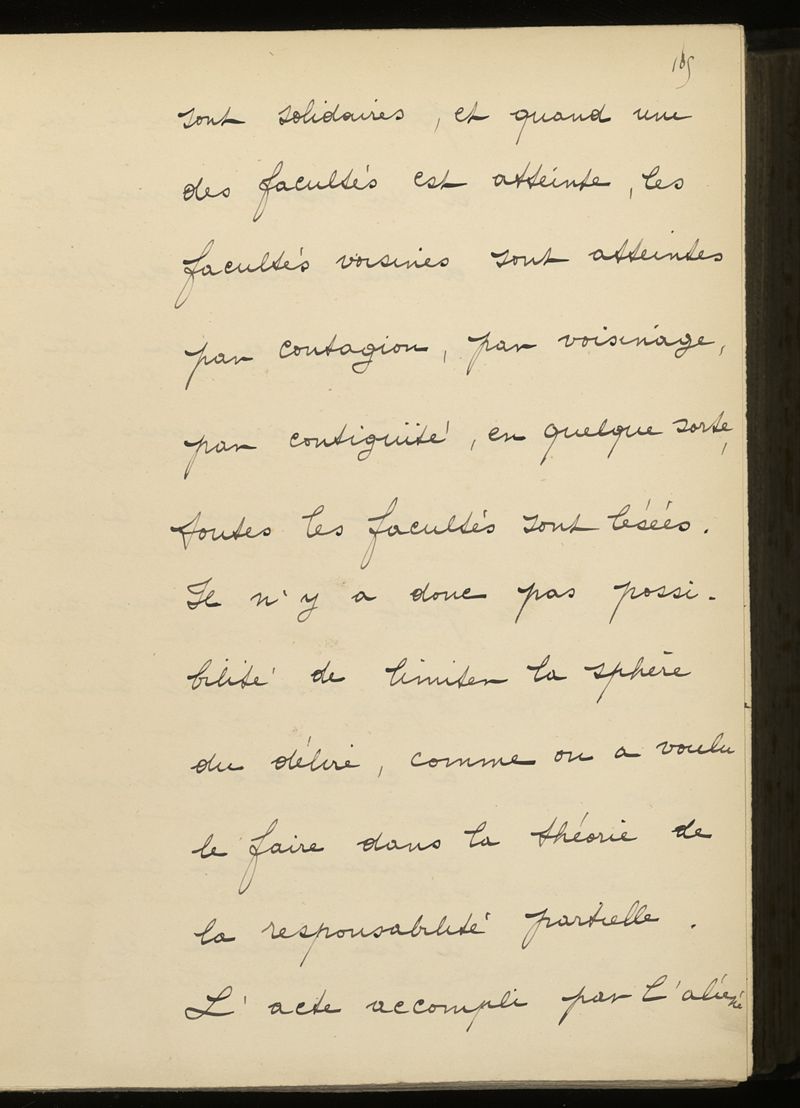 165
sont solidaires, et quand une
des facultés est atteinte, les
facultés voisines sont atteintes
par contagion, par voisinage,
par contiguïté, en quelque sorte,
toutes les facultés sont lésées.
Il n'y a donc pas possi-
bilité de limiter la sphère
du délire, comme on a voulu
le faire dans la théorie de
la responsabilité partielle.
L'acte accompli par l'aliéné